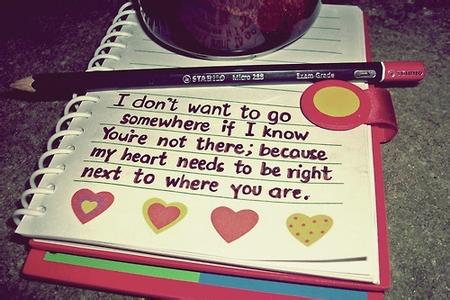 STABILO Micro 288 Exam Grade
I don't want to go
somewhere if I know
You're not there; because
my heart needs to be right
next to where you are.